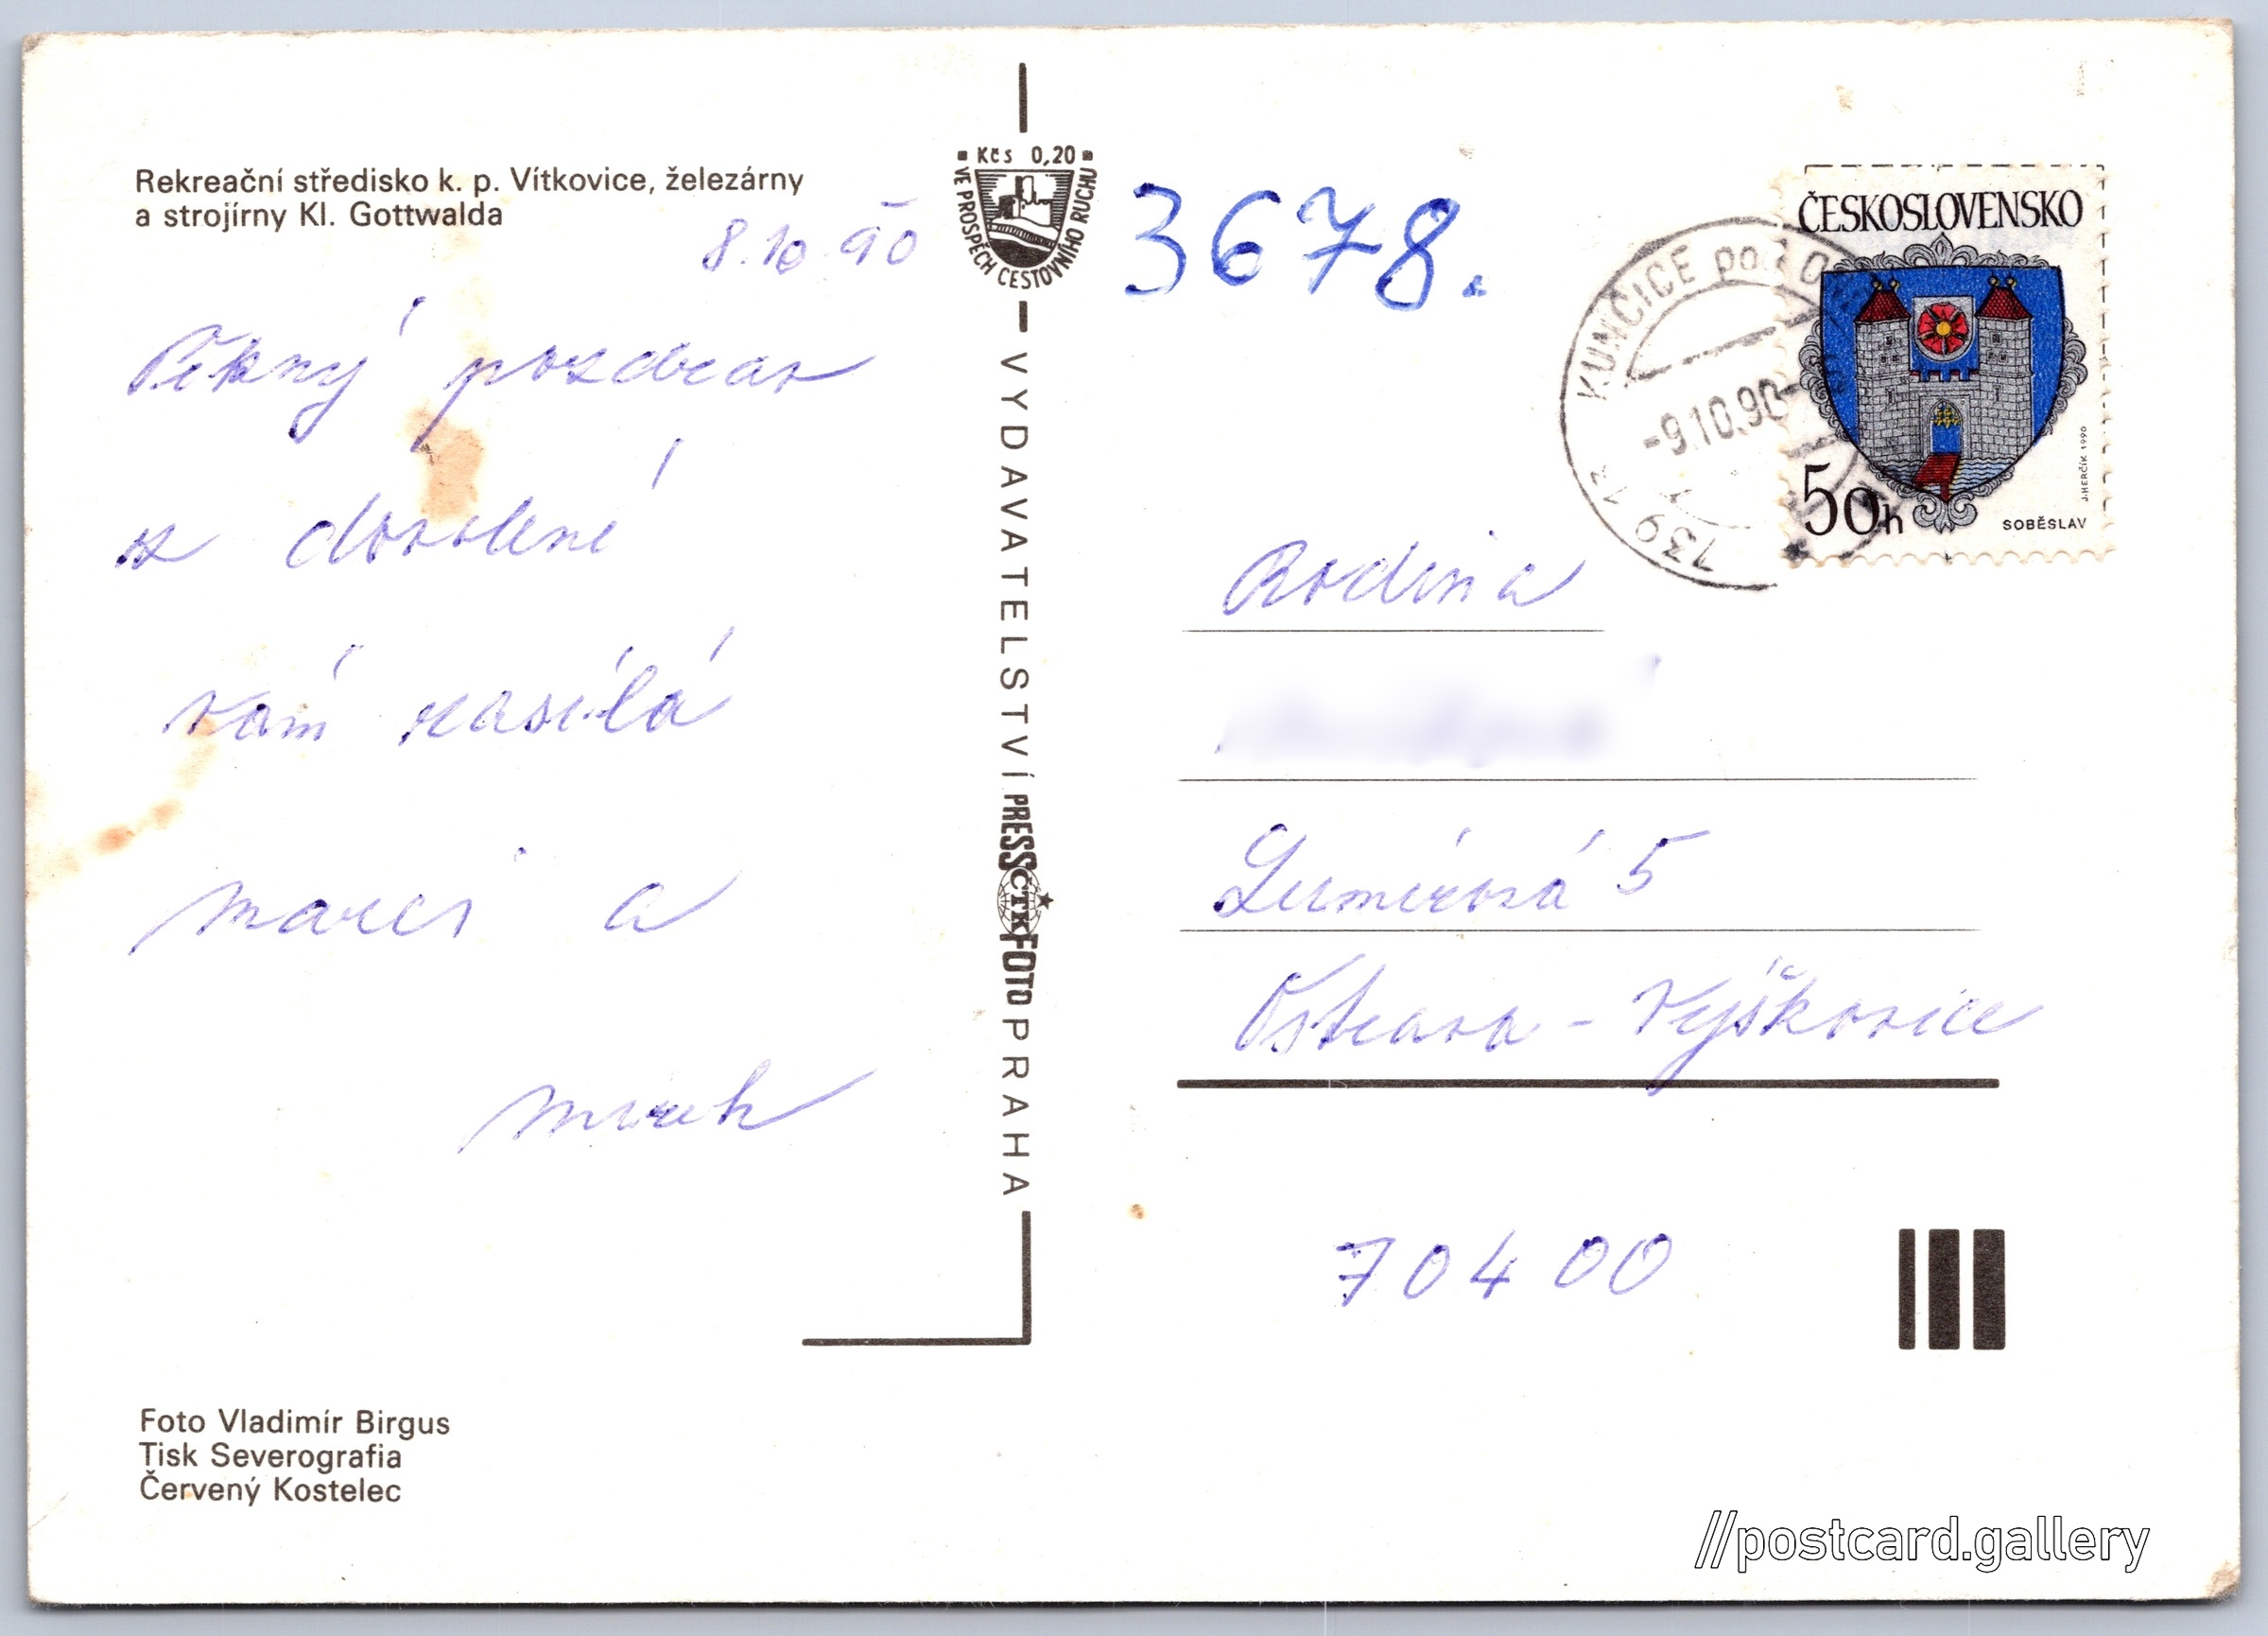 Rekreační středisko k. p. Vítkovice, železárny
a strojírny Kl. Gottwalda
8.10.90
Pěkný pozdrav
z dovolené
vám zasílá
a
Mirek
Foto Vladimír Birgus
Tisk Severografia
Červený Kostelec
Kčs 0,20
VE PROSPĚCH CESTOVNÍHO RUCHU
VYDAVATELSTVÍ PRESSFOTO PRAHA
ČTK
3678.
KUNČICE pod O
-9.10.90
739 1
ČESKOSLOVENSKO
50h
SOBĚSLAV
J.HERČÍK 1990
Rodina
Lumírová 5
Ostrava - Vyškovice
704 00
//postcard.gallery